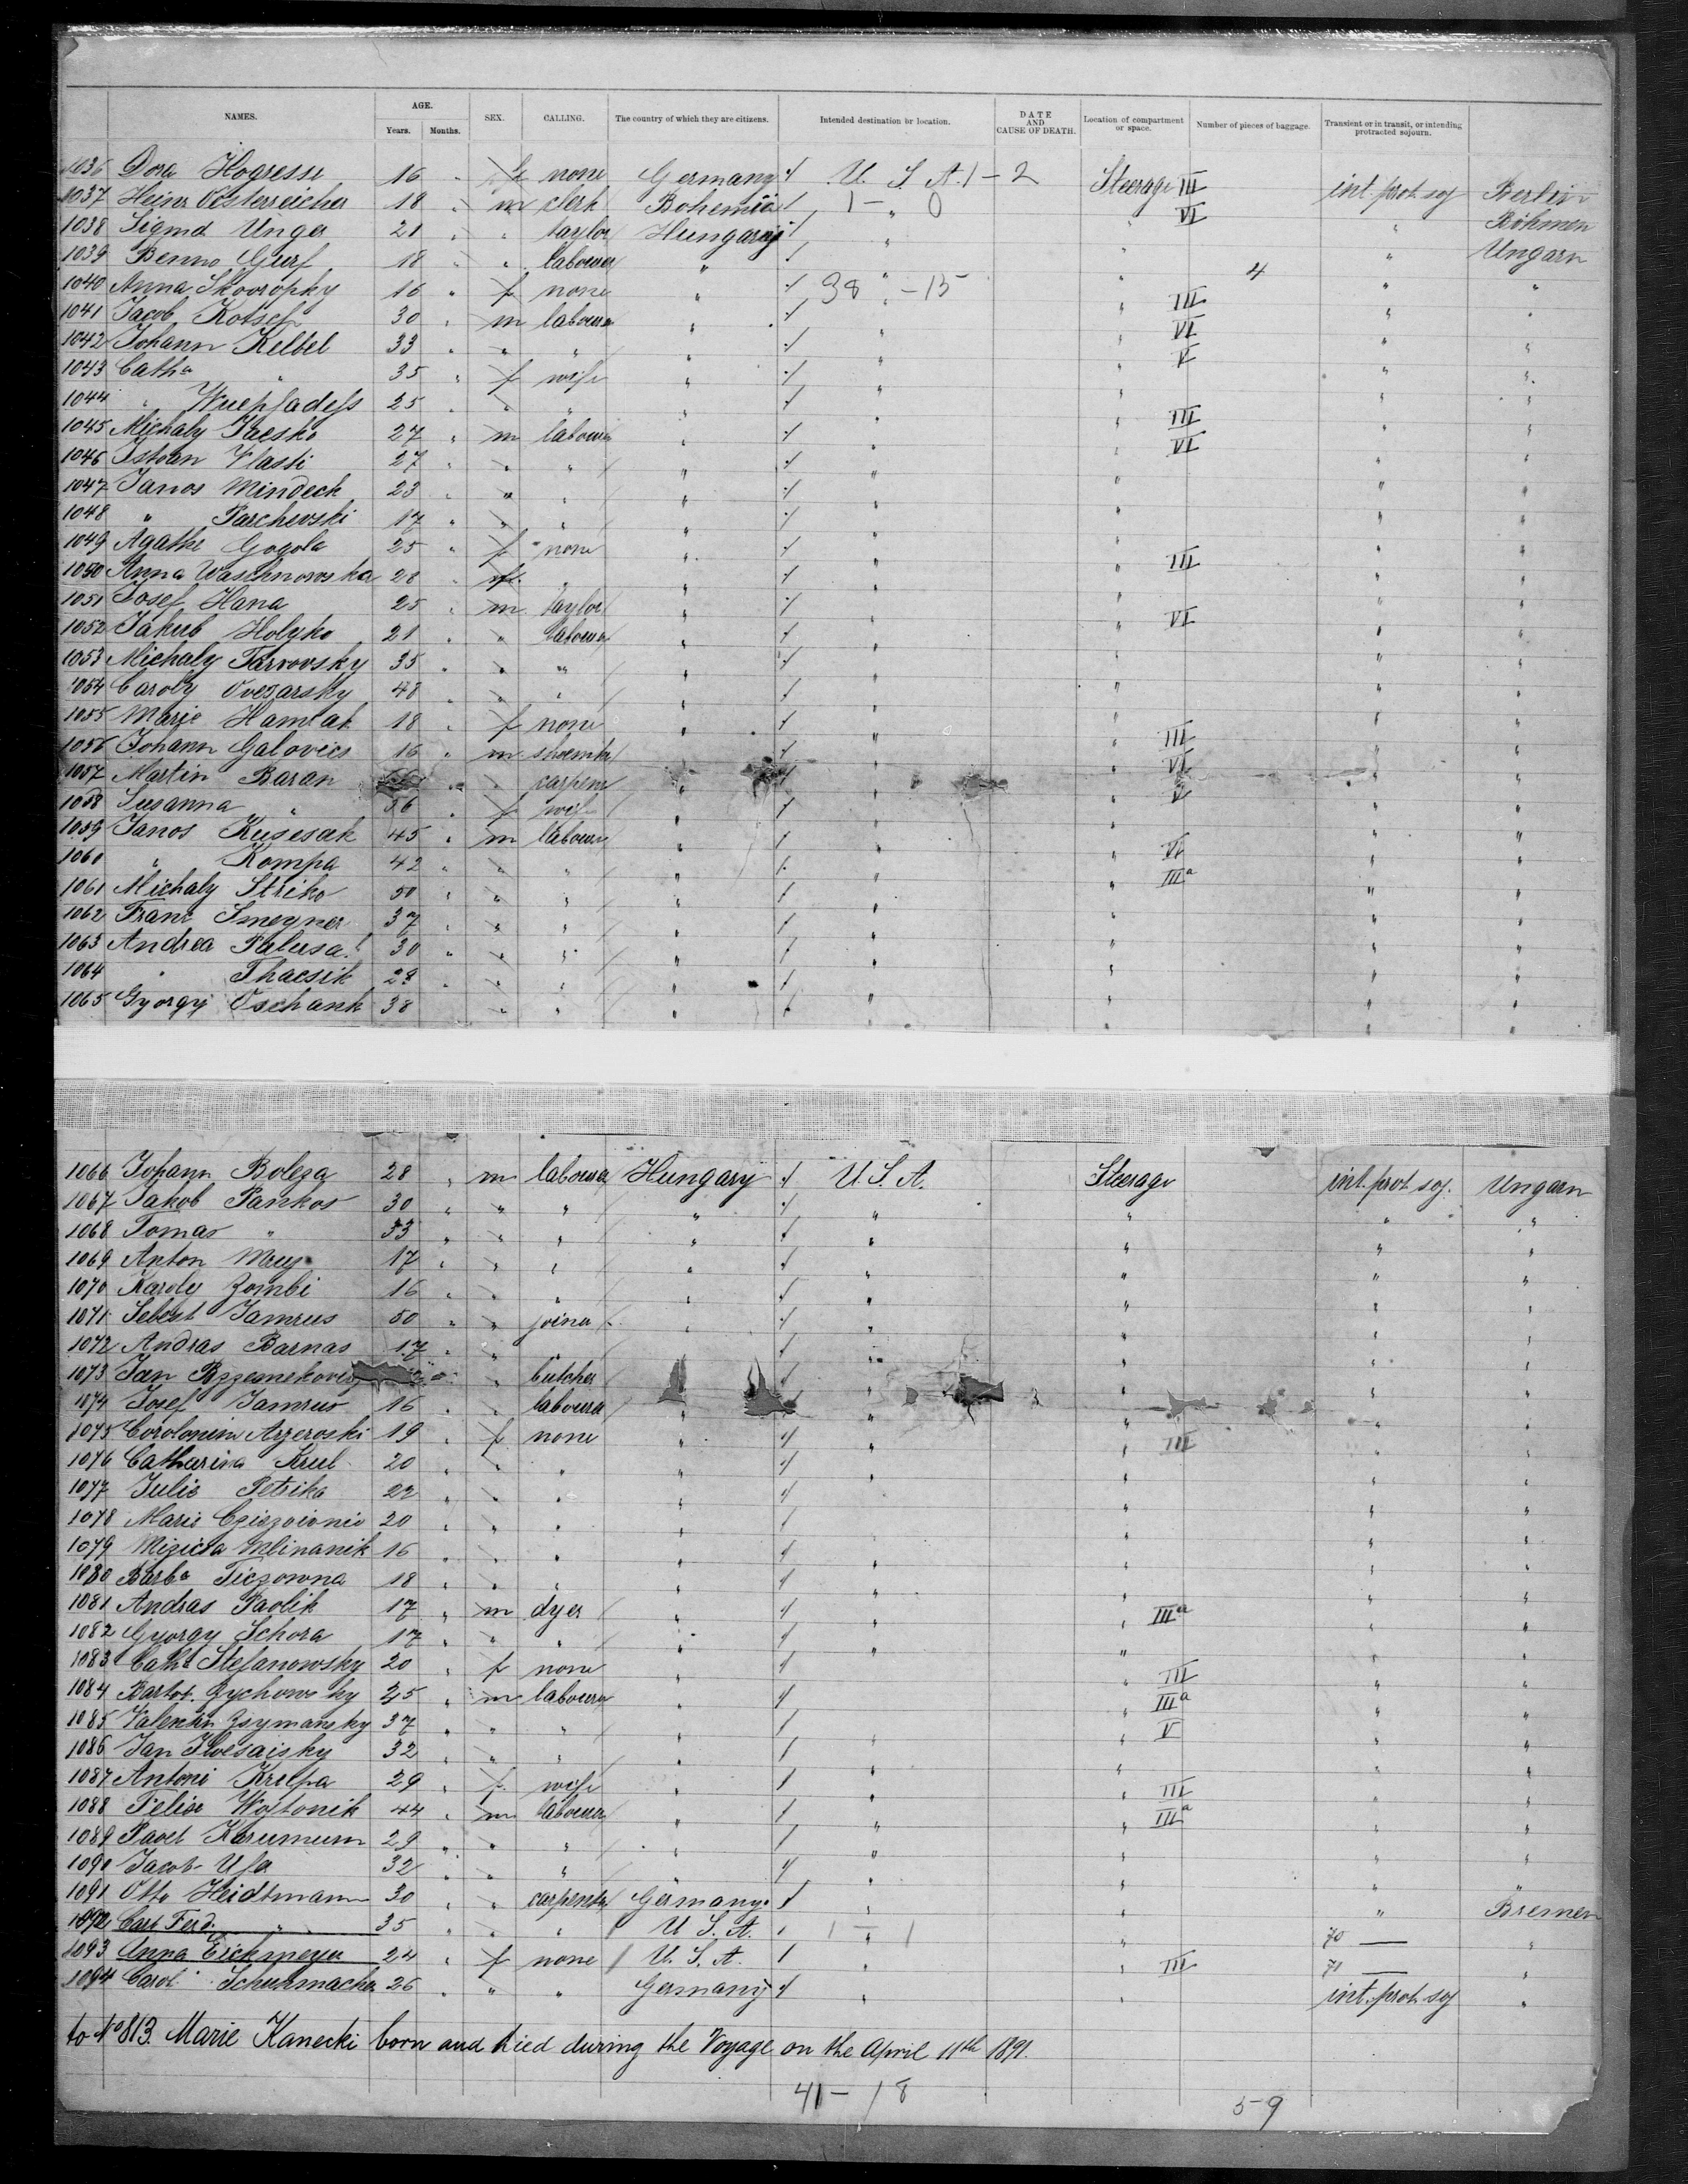 NAMES. AGE. SEX. CALLING. The country of which they are citizens. Intended destination or location. DATE AND CAUSE OF DEATH. Location of compartment or space. Number of pieces of baggage. Transient or in transit, or intending protracted sojourn.
Years. Months.
1036 Dora Hogresse 16 " f none Germany / U. S. A. 1 - 2 Steerage III int. prot. soj Berlin
1037 Heinr Oesterreicher 18 " m clerk Bohemia / 1 - " 0 " VI " Böhmen
1038 Sigmd Unger 21 " " taylor Hungary / " " " Ungarn
1039 Benno Gurf 18 " " labourer " / " " 4 " "
1040 Anna Skovropky 16 " f none " / 38 " - 15 " III " "
1041 Jacob Kotsch 30 " m labourer " / " " VI " "
1042 Johann Kelbel 33 " " " " / " " V " "
1043 Catha " 35 " f wife " / " " " "
1044 " 25 " " " " / " " III " "
1045 Michaly Jacsko 27 " m labourer " / " " VI " "
1046 Istvan Vlasti 27 " " " " / " " " "
1047 Janos Mindeck 23 " " " " / " " " "
1048 " Parchevski 17 " " " " / " " " "
1049 Agathe Gogola 25 " f none " / " " III " "
1050 Anna Waschnowska 28 " f " " / " " " "
1051 Josef Hana 25 " m taylor " / " " VI " "
1052 Jakub Holyko 21 " " labourer " / " " " "
1053 Michaly Tarvovsky 35 " " " " / " " " "
1054 Caroly Ovezarsky 48 " " " " / " " " "
1055 Marie Hamrak 18 " f none " / " " III " "
1056 Johann Galovics 16 " m shoemkr " / " " VI " "
1057 Martin Baran " " carpent " / " " V " "
1058 Susanna " 36 " f wife " / " " " "
1059 Janos Kusesak 45 " m labourer " / " " VI " "
1060 " Kompa 42 " " " " / " " IIIa " "
1061 Michaly Striko 50 " " " " / " " " "
1062 Franz Smeyner 37 " " " " / " " " "
1063 Andrea Palusa 30 " " " " / " " " "
1064 " Thacsik 28 " " " " / " " " "
1065 Gyorgy Oschank 38 " " " / " " " "
1066 Johann Bolega 28 " m labourer Hungary / U. S. A. Steerage int. prot. soj. Ungarn
1067 Jakob Pankos 30 " " " " / " " " "
1068 Tomas " 33 " " " " / " " " "
1069 Anton 17 " " " " / " " " "
1070 Karoly Zombi 16 " " " " / " " " "
1071 Sebest Jamrus 50 " " joiner " / " " " "
1072 Andras Barnas 17 " " " " / " " " "
1073 Jan " butcher / " " " "
1074 Josef Jamrus 16 " " labourer " / " " " "
1075 Corolonine Azeroski 19 " f none " / " " III " "
1076 Catharina Krul 20 " " " " / " " " "
1077 Julie Petrika 22 " " " " / " " " "
1078 Marie 20 " " " " / " " " "
1079 Mlinanik 16 " " " " / " " " "
1080 Barba Ticzowna 18 " " " " / " " " "
1081 Andras Paolik 17 " m dyer " / " " IIIa " "
1082 Gyorgy Schora 17 " " " " / " " " "
1083 Cath Stefanowsky 20 " f none " / " " III " "
1084 Bartol. Zychowsky 25 " m labourer " / " " IIIa " "
1085 Valentin Zsymansky 37 " " " " / " " V " "
1086 Jan 32 " " " " / " " " "
1087 Antoni Krulpa 29 " f wife " / " " III " "
1088 Felix Wojtonik 44 " m labourer " / " " IIIa " "
1089 Pavel 29 " " " " / " " " "
1090 Jacob Ufa 32 " " " / " " " "
1091 Otto Heidtmann 30 " " carpenter Germany / " " " Bremen
1092 Carl Ferd. " 35 " " " U. S. A. / 1 - 1 " 70 — "
1093 Anna Eickmeyer 24 " f none U. S. A. / " III 71 — "
1094 Carol. Schuhmacher 26 " " " Germany / " " int. prot. soj "
to No 813. Marie Kanecki born and died during the Voyage on the April 11th 1891.
41 - 18
59